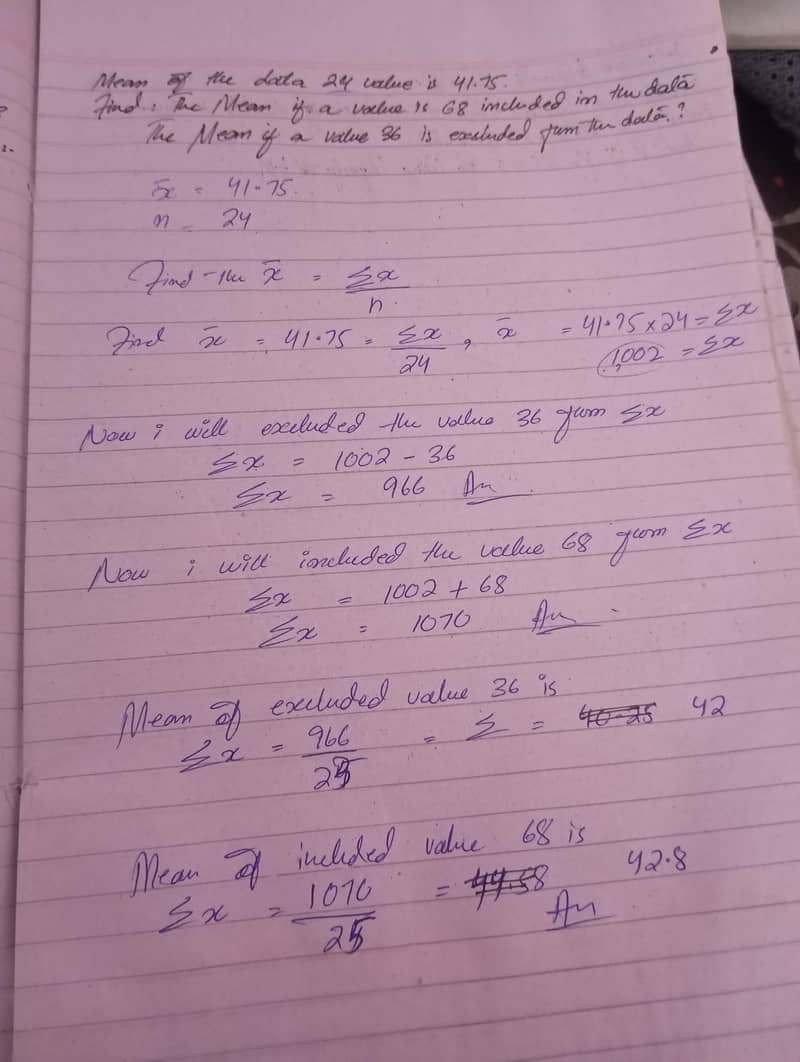 Mean of the data 24 value is 41.75.
Find: The Mean if a value is 68 included in the data
The Mean if a value 36 is excluded from the data.?
x̄ = 41.75.
n = 24
Find the x̄ = Σx/n.
Find x̄ = 41.75 = Σx/24, x̄ = 41.75 x 24 = Σx
1002 = Σx
Now i will excluded the value 36 from Σx
Σx = 1002 - 36
Σx = 966 An
Now i will included the value 68 from Σx
Σx = 1002 + 68
Σx = 1070 An
Mean of excluded value 36 is
Σx = 966/23 = Σ = 40.25 42
Mean of included value 68 is
Σx = 1070/25 = 44.58 42.8
An